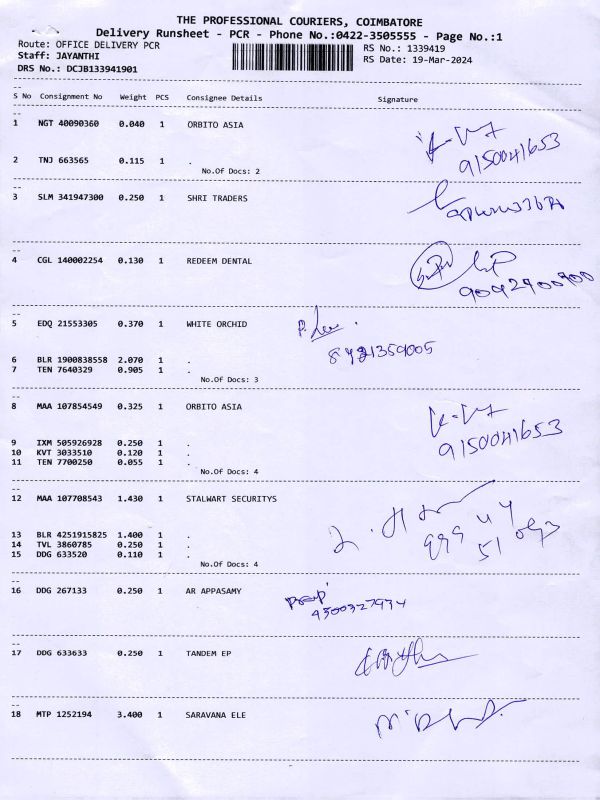 THE PROFESSIONAL COURIERS, COIMBATORE
Delivery Runsheet - PCR - Phone No.:0422-3505555 - Page No.:1
Route: OFFICE DELIVERY PCR RS No.: 1339419
Staff: JAYANTHI RS Date: 19-Mar-2024
DRS No.: DCJB133941901
S No Consignment No Weight PCS Consignee Details Signature
1 NGT 40090360 0.040 1 ORBITO ASIA
9150041653
2 TNJ 663565 0.115 1 .
No.Of Docs: 2
3 SLM 341947300 0.250 1 SHRI TRADERS
4 CGL 140002254 0.130 1 REDEEM DENTAL
9092900900
5 EDQ 21553305 0.370 1 WHITE ORCHID
6 BLR 1900838558 2.070 1 .
7 TEN 7640329 0.905 1 .
No.Of Docs: 3
8 MAA 107854549 0.325 1 ORBITO ASIA
9150041653
9 IXM 505926928 0.250 1 .
10 KVT 3033510 0.120 1 .
11 TEN 7700250 0.055 1 .
No.Of Docs: 4
12 MAA 107708543 1.430 1 STALWART SECURITYS
13 BLR 4251915825 1.400 1 .
14 TVL 3860785 0.250 1 .
15 DDG 633520 0.110 1 .
No.Of Docs: 4
16 DDG 267133 0.250 1 AR APPASAMY
17 DDG 633633 0.250 1 TANDEM EP
18 MTP 1252194 3.400 1 SARAVANA ELE